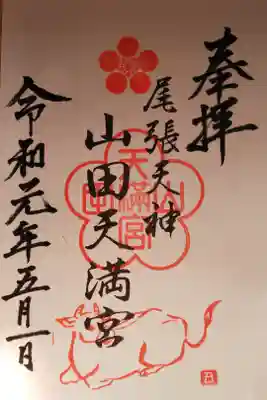 奉拝
尾張天神
山田天満宮
令和元年五月一日
天満宮
山田